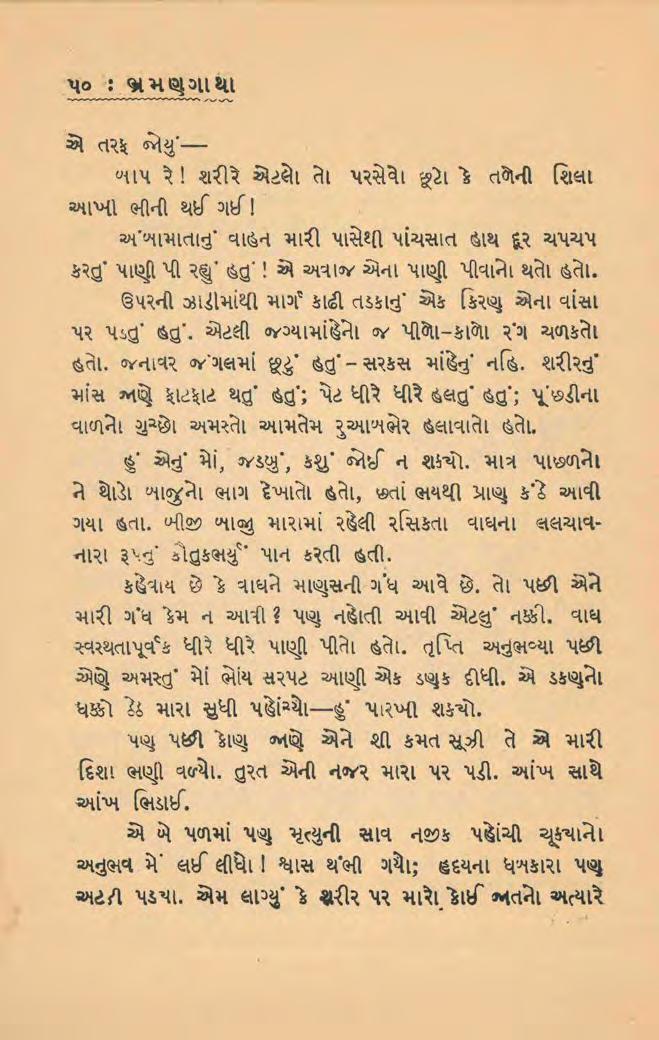 ૫૦ : ભ્રમણગાથા
એ તરફ જોયું—
બાપ રે! શરીરે એટલો તો પરસેવો છૂટો કે તળેની શિલા
આખી ભીની થઈ ગઈ!
અંબામાતાનું વાહન મારી પાસેથી પાંચસાત હાથ દૂર ચપચપ
કરતું પાણી પી રહ્યું હતું! એ અવાજ એના પાણી પીવાનો થતો હતો.
ઉપરની ઝાડીમાંથી માર્ગ કાઢી તડકાનું એક કિરણ એના વાંસા
પર પડતું હતું. એટલી જગ્યામાંહેનો જ પીળો-કાળો રંગ ચળકતો
હતો. જનાવર જંગલમાં છૂટું હતું – સરકસ માંહેનું નહિ. શરીરનું
માંસ જાણે ફાટફાટ થતું હતું; પેટ ધીરે ધીરે હલતું હતું; પૂંછડીના
વાળનો ગુચ્છો અમસ્તો આમતેમ રુઆબભેર હલાવાતો હતો.
હું એનું મોં, જડબું, કશું જોઈ ન શક્યો. માત્ર પાછળનો
ને થોડો બાજુનો ભાગ દેખાતો હતો, છતાં ભયથી પ્રાણ કંઠે આવી
ગયા હતા. બીજી બાજુ મારામાં રહેલી રસિકતા વાઘના લલચાવ-
નારા રૂપનું કૌતુકભર્યું પાન કરતી હતી.
કહેવાય છે કે વાઘને માણસની ગંધ આવે છે. તો પછી એને
મારી ગંધ કેમ ન આવી? પણ નહોતી આવી એટલું નક્કી. વાઘ
સ્વસ્થતાપૂર્વક ધીરે ધીરે પાણી પીતો હતો. તૃપ્તિ અનુભવ્યા પછી
એણે અમસ્તું મોં ભોંય સરપટ આણી એક ડણક દીધી. એ ડકણનો
ધક્કો ઠેઠ મારા સુધી પહોંચ્યો—હું પારખી શક્યો.
પણ પછી કોણ જાણે એને શી કમત સૂઝી તે એ મારી
દિશા ભણી વળ્યો. તુરત એની નજર મારા પર પડી. આંખ સાથે
આંખ ભિડાઈ.
એ બે પળમાં પણ મૃત્યુની સાવ નજીક પહોંચી ચૂક્યાનો
અનુભવ મેં લઈ લીધો! શ્વાસ થંભી ગયો; હૃદયના ધબકારા પણ
અટકી પડ્યા. એમ લાગ્યું કે શરીર પર મારો કોઈ જાતનો અત્યારે